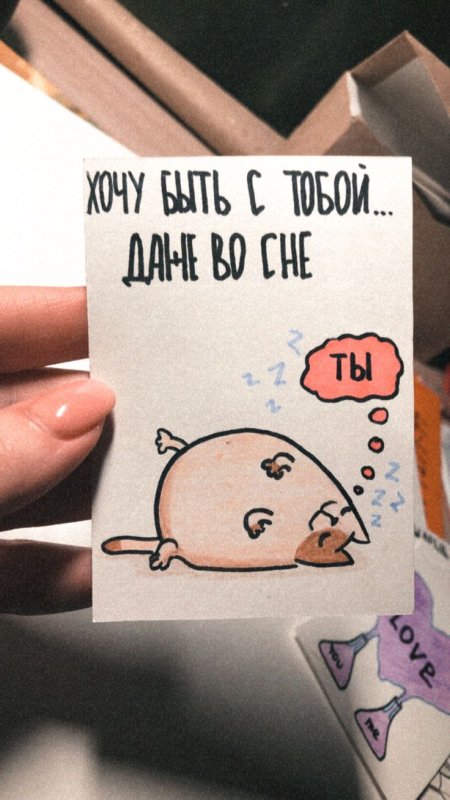 ХОЧУ БЫТЬ С ТОБОЙ...
ДАЖЕ ВО СНЕ
z
z
z
z
ТЫ
z
z
z
z
LOVE
YOU
ME